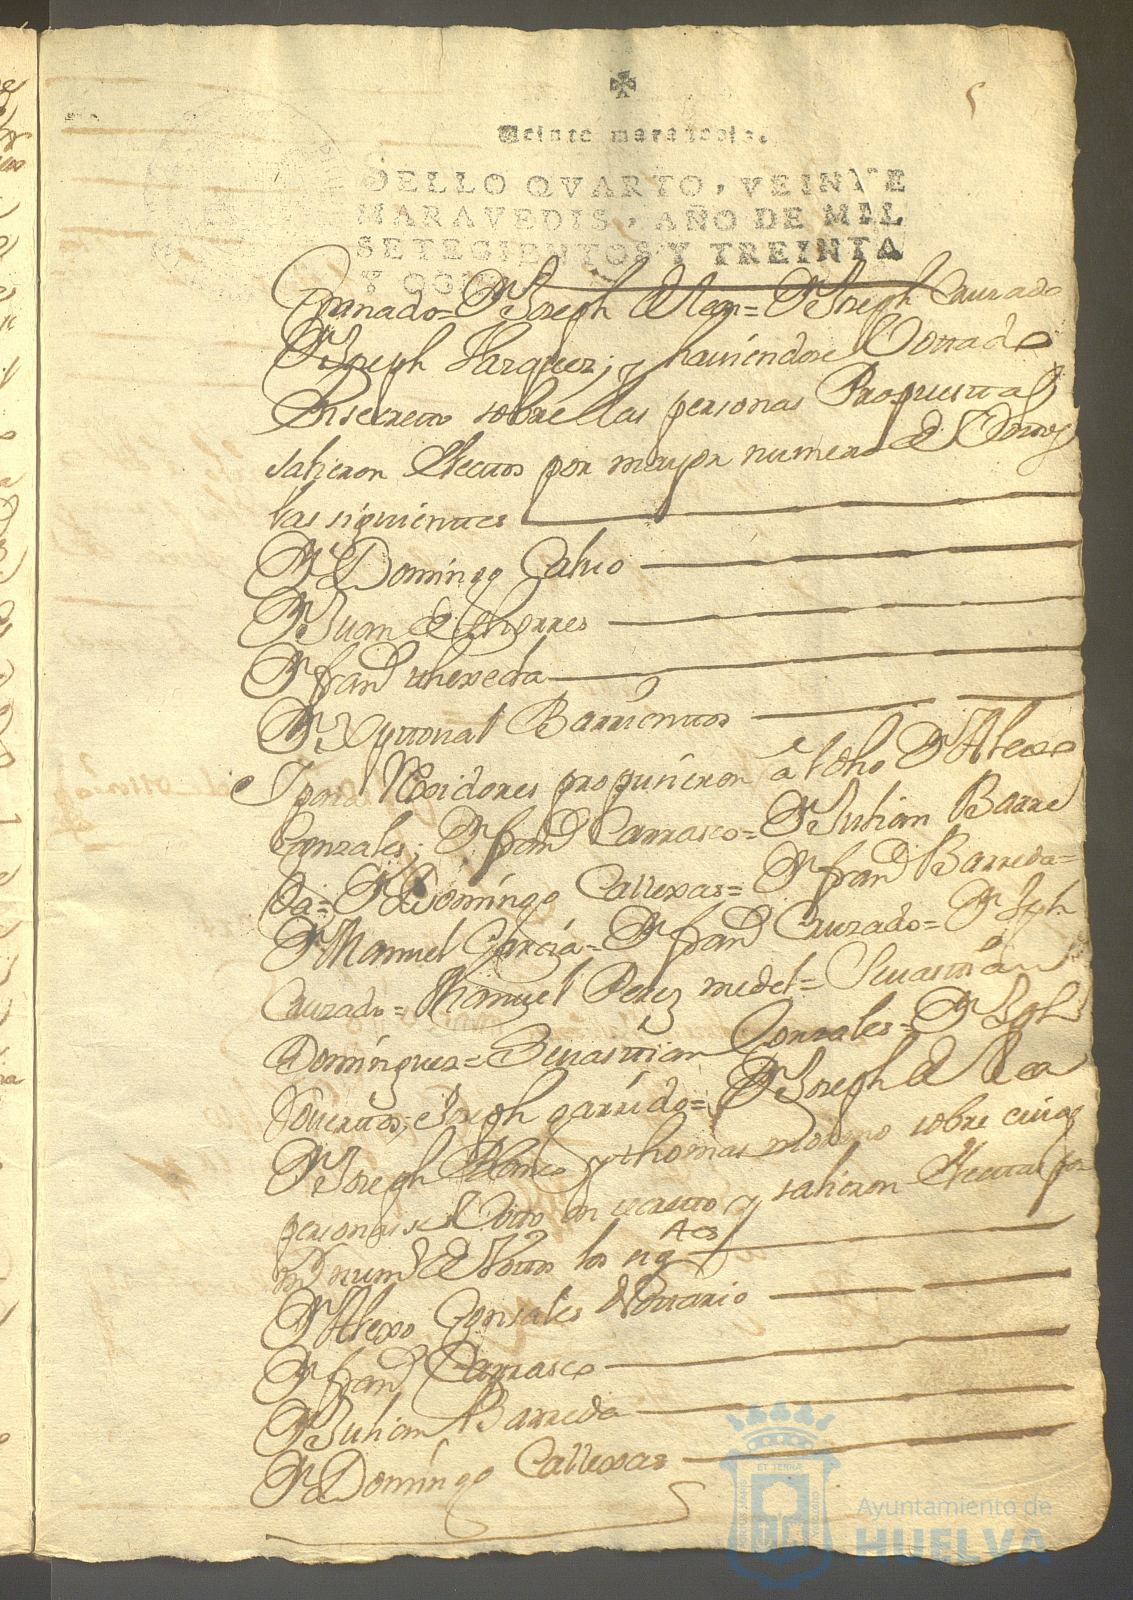 5
Veinte maravedis.
SELLO QVARTO, VEINTE
MARAVEDIS, AÑO DE MIL
SETECIENTOS Y TREINTA
Y OCHO
Granado = Dn Joseph de Leon = Dn Joseph Cruzado
Dn Joseph Vazquez; y haviendose Votado
En secreto sobre las personas Propuestas
salieron Electos por mayor numero de Votos
las siguientes
Dn Domingo Calvo
Dn Juan de thorres
Dn franco
Dn Xptoval Barrientos
Y para Rexidores propusieron â el dho Dn Alexo
Gonzales; Dn franco Carrasco = Dn Julian Barre
da = Dn Domingo Callexas = Dn franco Barreda =
Dn Manuel Garcia = Dn franco Cruzado = Dn Jph
Cruzado = Manuel Perez medel = Sevastian
Dominguez = Sevastian Gonzales = Dn Jph
Joseph garrido = Dn Joseph de Lea
Dn Joseph Blanco y thomas moreno sobre cuias
personas se Voto en secreto y salieron Electas por
mor numo de Votos los sigtes
Dn Alexo Gonsales Notario
Dn franco Carrasco
Dn Julian Barreda
Dn Domingo Callexas
Ayuntamiento de
HUELVA